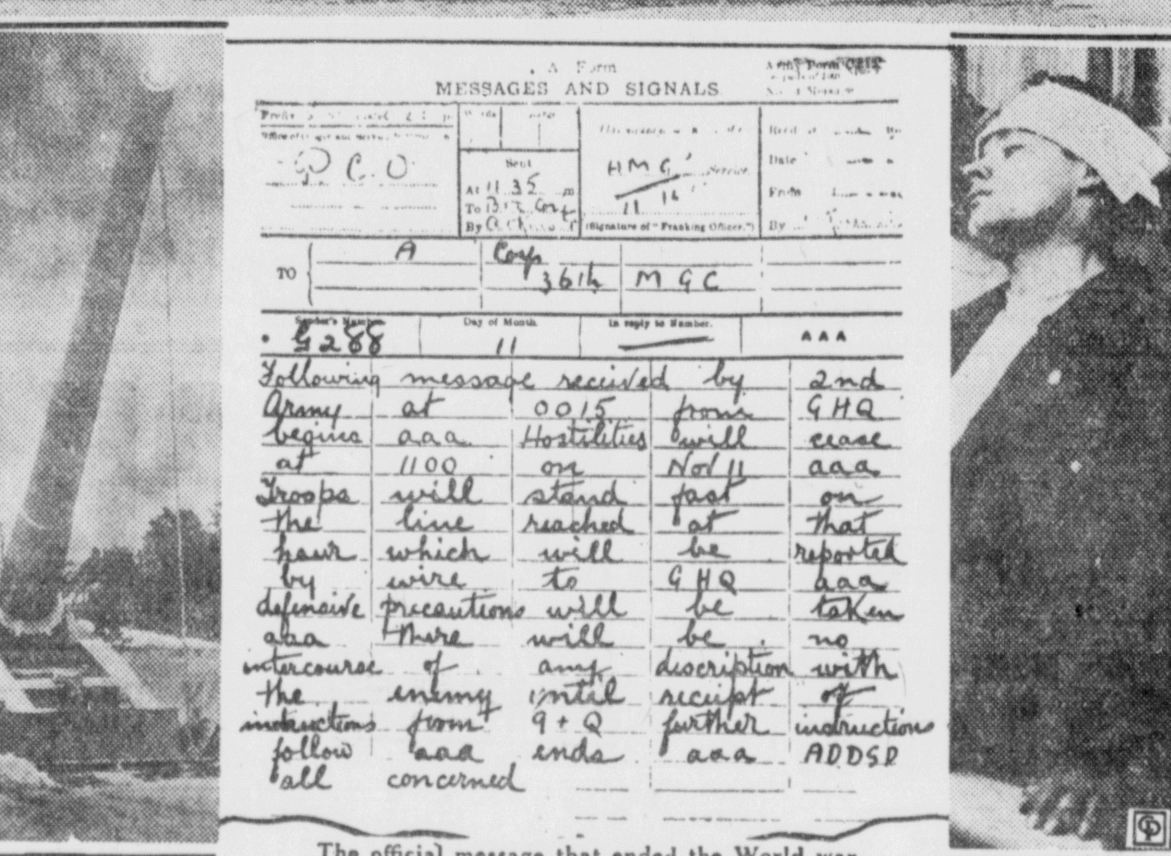 A Form
MESSAGES AND SIGNALS.
Army Form
Prefix
Sent
At 11 35 m
To
By
H M G Service.
11 16
(Signature of "Franking Officer.")
Date
From
By
TO
A Corp
36th M G C
Sender's Number.
Day of Month.
In reply to Number.
AAA
G 288 11
Following message received by 2nd
Army at 0015 from GHQ
begins aaa Hostilities will cease
at 1100 on Nov 11 aaa
Troops will stand fast on
the line reached at that
hour which will be reported
by wire to GHQ aaa
defensive precautions will be taken
aaa There will be no
intercourse of any discription with
the enemy until receipt of
instructions from 9 + Q further instructions
follow aaa ends aaa ADDSD
all concerned
The official message that ended the World war